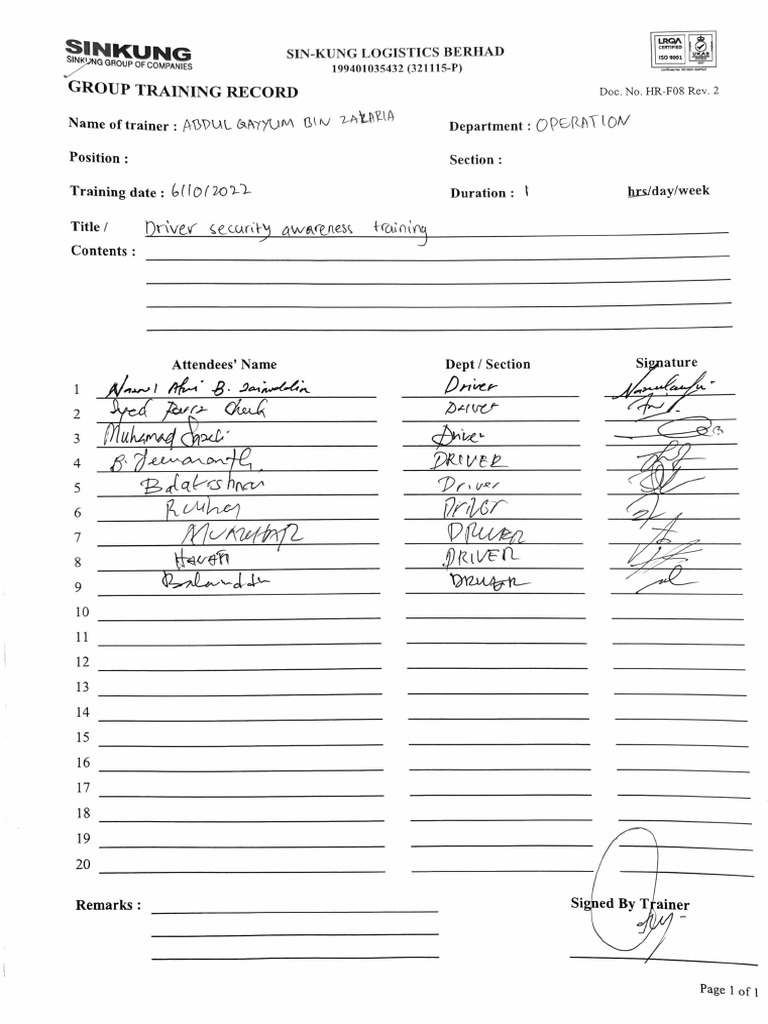 SINKUNG
SINKUNG GROUP OF COMPANIES
SIN-KUNG LOGISTICS BERHAD
199401035432 (321115-P)
LRQA
CERTIFIED
ISO 9001
UKAS
GROUP TRAINING RECORD
Doc. No. HR-F08 Rev. 2
Name of trainer : ABDUL QAYYUM BIN ZAKARIA Department : OPERATION
Position : Section :
Training date : 6/10/2022 Duration : 1 hrs/day/week
Title / Driver security awareness training
Contents :
Attendees' Name Dept / Section Signature
1 B. Driver
2 Syed Driver
3 Muhamad Driver
4 B. DRIVER
5 Driver
6 Driver
7 DRIVER
8 DRIVER
9 DRIVER
10
11
12
13
14
15
16
17
18
19
20
Remarks : Signed By Trainer
Page 1 of 1